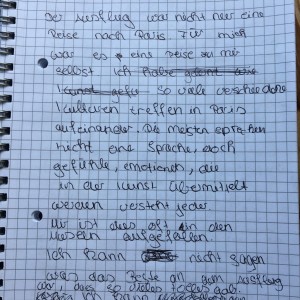 Der Ausflug war nicht nur eine
Reise nach Paris. Für mich
war es eine Reise zu mir
selbst Ich habe
Kunst gefü So viele verschiedene
Kulturen treffen in Paris
aufeinander. Die meisten sprechen
nicht eine Sprache, doch
gefühle, emotionen, die
in der Kunst übermittelt
werden versteht jeder
Mir ist dies oft in den
Museen aufgefallen.
Ich kann nicht sagen
was das Beste an dem Ausflug
war, dies so vieles gab.
ich kann